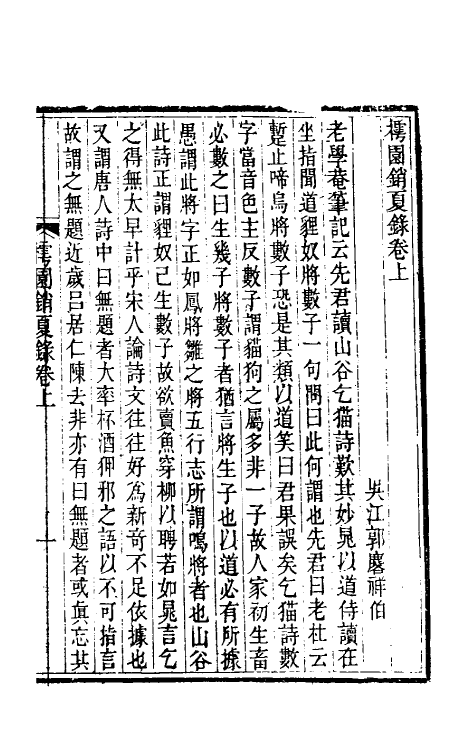 樗園銷夏錄卷上
吳江郭麐祥伯
老學菴筆記云先君讀山谷乞猫詩歎其妙晁以道侍讀在
坐指聞道貍奴將數子一句問曰此何謂也先君曰老杜云
蹔止啼烏將數子恐是其類以道笑曰君果誤矣乞猫詩數
字當音色主反數子謂猫狗之屬多非一子故人家初生畜
必數之曰生幾子將數子者猶言將生子也以道必有所據
愚謂此將字正如鳳將雛之將五行志所謂鳴將者也山谷
此詩正謂貍奴已生數子故欲賣魚穿柳以聘若如晁言乞
之得無太早計乎宋人論詩文往往好為新奇不足依據也
又謂唐人詩中曰無題者大率杯酒狎邪之語以不可指言
故謂之無題近歲呂居仁陳去非亦有曰無題者或真忘其
樗園銷夏錄卷上
一